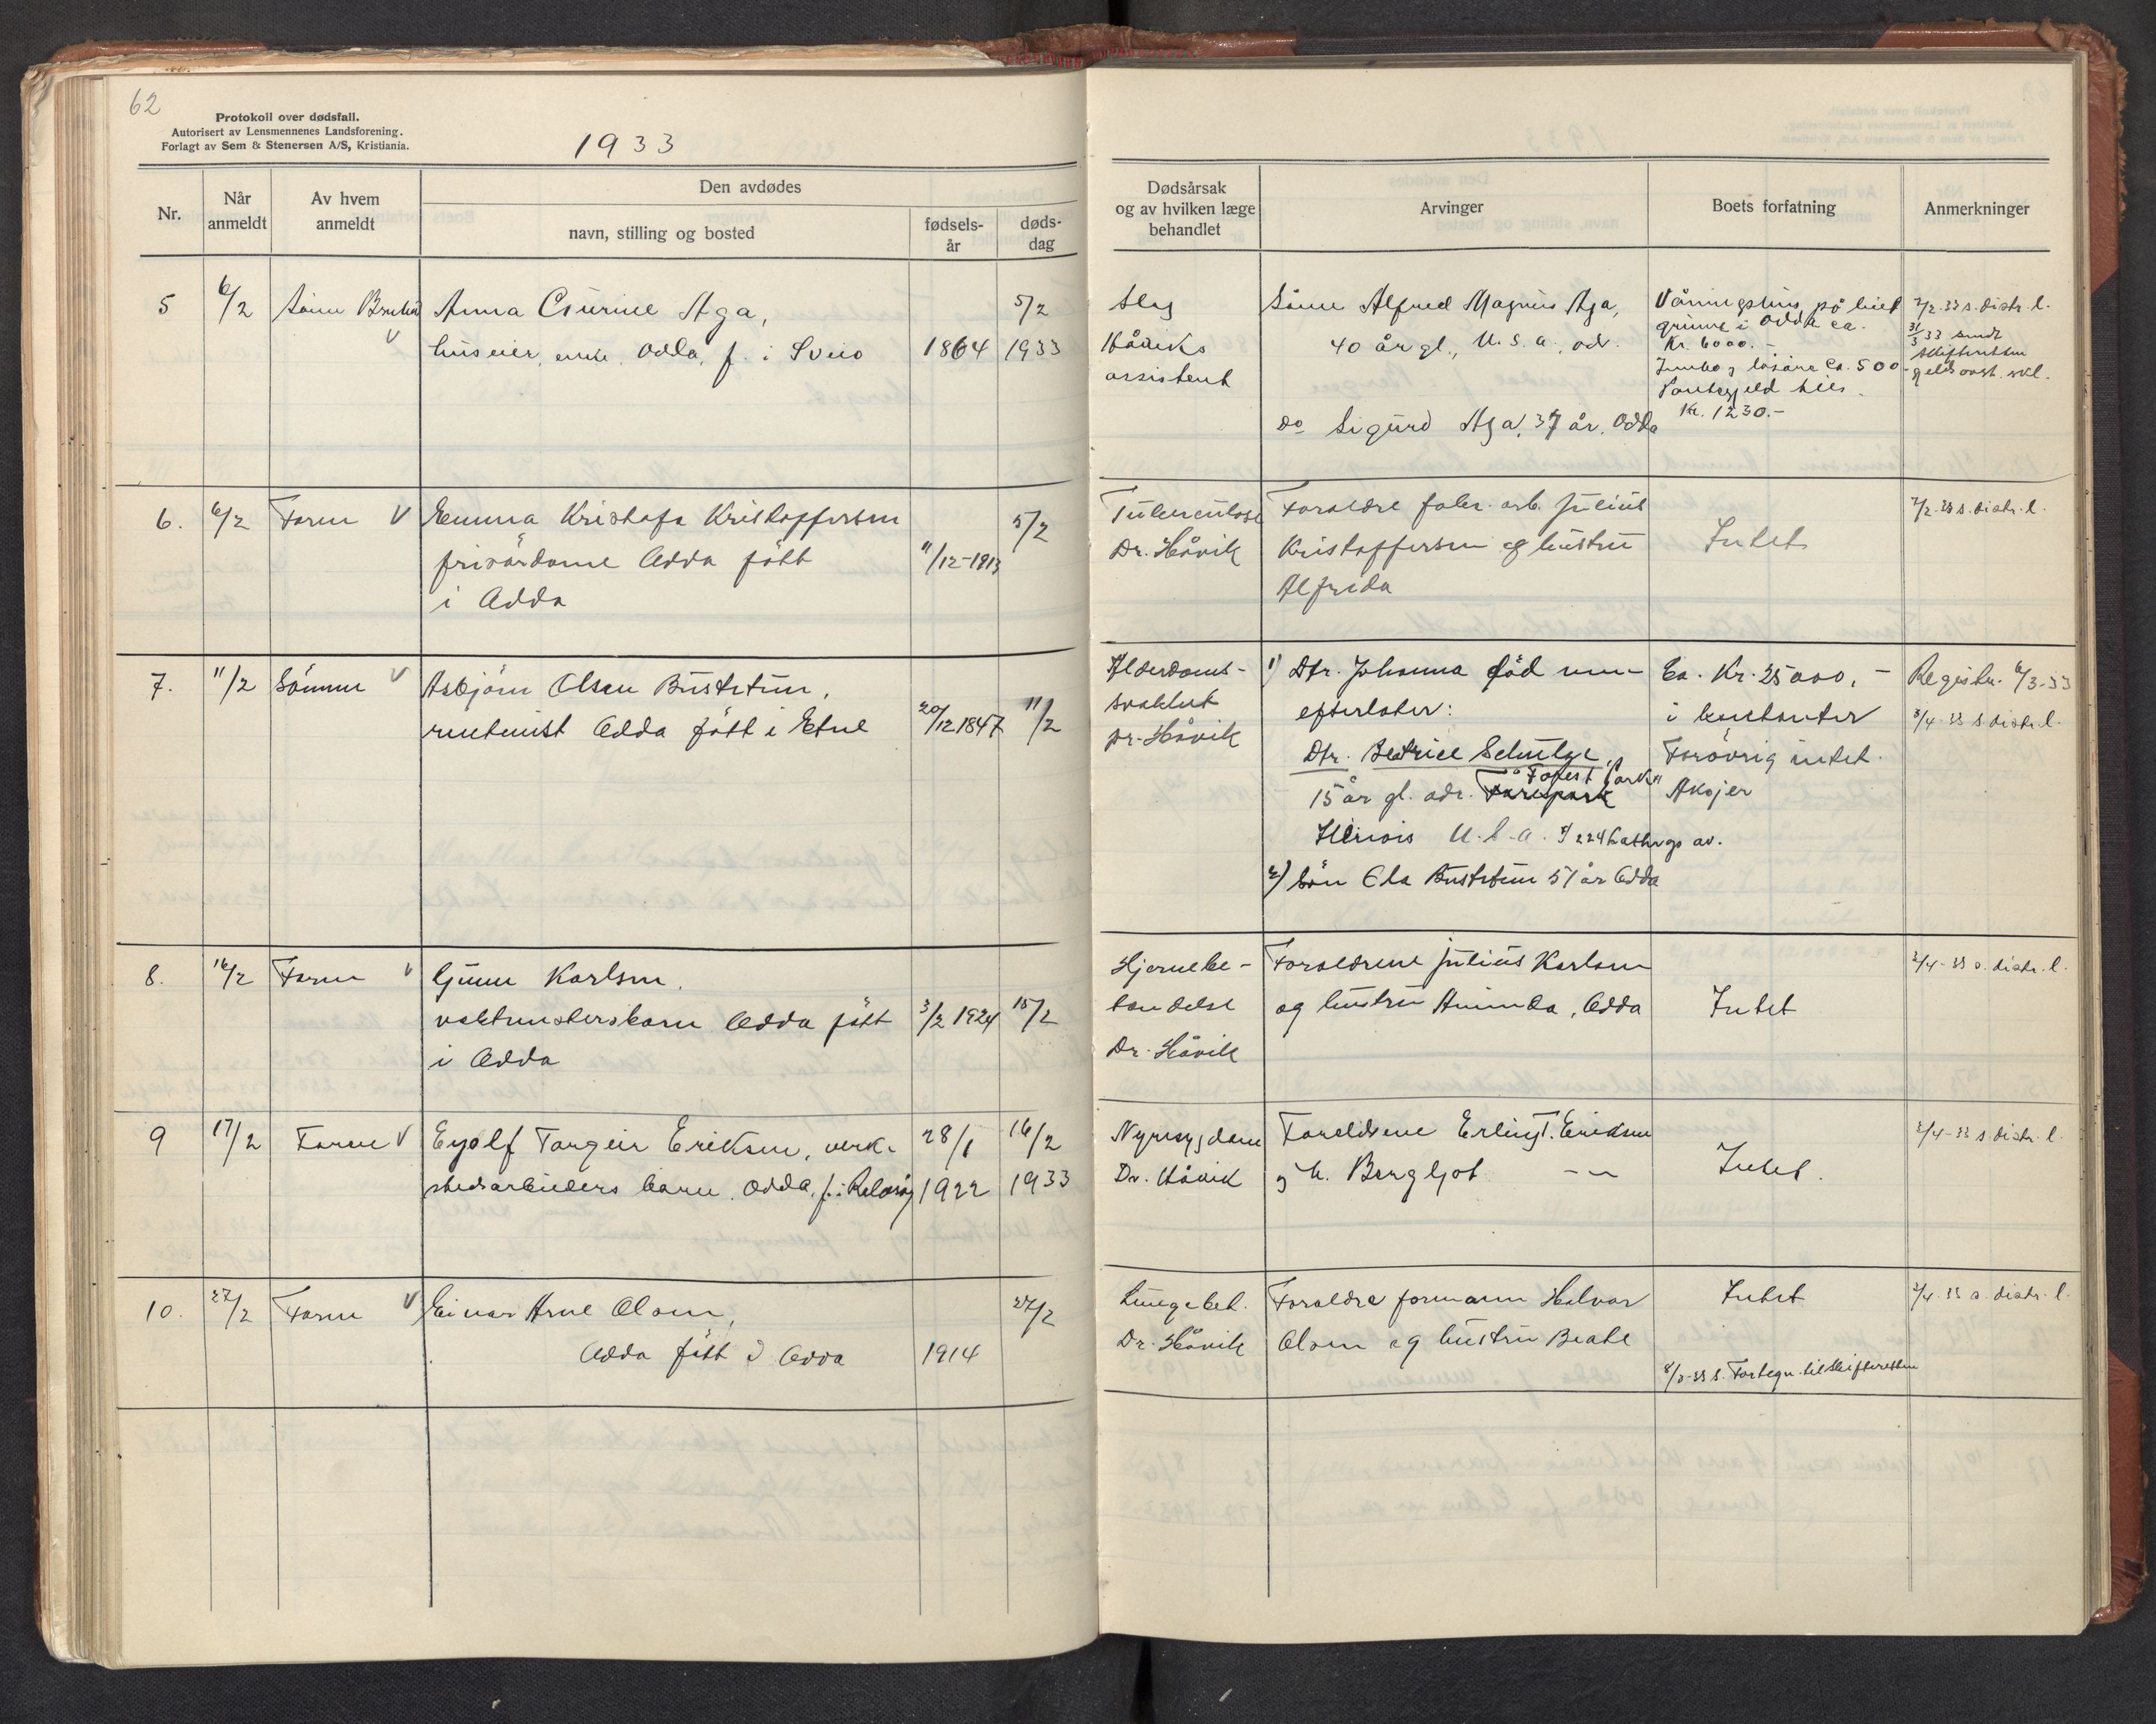 62
Protokoll over dødsfall.
Autorisert av Lensmennenes Landsforening.
Forlagt av Sem & Stenersen A/S, Kristiania.
1933
Nr.
Når anmeldt
Av hvem anmeldt
Den avdødes
navn, stilling og bosted
fødsels-år
døds-dag
Dødsårsak og av hvilken læge behandlet
Arvinger
Boets forfatning
Anmerkninger
5
6/2
Anna Gurine Aga,
huseier, enke, Odda, f. i Sveio
1864
5/2
1933
Slag
Håviks
assistent
Sønn Alfred Magnus Aga,
40 år gl., U.S.a., od.
do Sigurd Aga, 37 år, Odda
Våningshus på leiet
grunn i Odda ca.
Kr. 6000.-
Innbo, løsøre ca. 500.-
Pantegjeld
Kr. 1230.-
7/2.33 s. distr. l.
31/3 33 sendt
skifteretten
6.
6/2
Faren V
Emma Kristofa Kristoffersen
Odda født
i Odda
11/12-1913
5/2
Tuberculose
Dr. Håvik
Foreldre fabr. arb. Julius
Kristoffersen og hustru
Alfrida
Intet
7/2.33 s. distr. l.
7.
11/2
Sønnen V
Asbjørn Olsen Bustetun,
rentenist Odda født i Etne
20/12 1847
11/2
Alderdoms-
svakhet
Dr. Håvik
1) Dtr. Johanna død men
efterlater:
Dtr. Beatrice Schulze,
15 år gl. adr. "Forest Park"
Illinois U.S.a. 224 Lathrops av.
2) Søn Ola Bustetun 51 år Odda
Ca. Kr. 25 000,-
i kontanter
Forøvrig intet.
Registr. 6/3-33
3/4-33 s. distr. l.
8.
16/2
Faren V
Gunn Karlsen.
vaktmesters barn Odda født
i Odda
3/2 1924
15/2
Hjernebe-
tendelse
Dr. Håvik
Foreldrene Julius Karlsen
og hustru Aminda, Odda
Intet
3/4-33 s. distr. l.
9
17/2
Faren V
Eyolf Torgeir Eriksen, verk-
stedsarbeiders barn. Odda, f. i
28/1
1922
16/2
1933
Nyresygdom
Dr. Håvik
Foreldrene Erling T. Eriksen
og h. Bergljot -"-
Intet.
3/4-33 s. distr. l.
10.
27/2
Faren V
Einar Arne Olsen,
Odda født i Odda
1914
27/2
Lungebet.
Dr. Håvik
Foreldre formann Halvor
Olsen og hustru Beate
Intet
8/3-33 s. Fortegn. til skifteretten
3/4-33 s. distr. l.